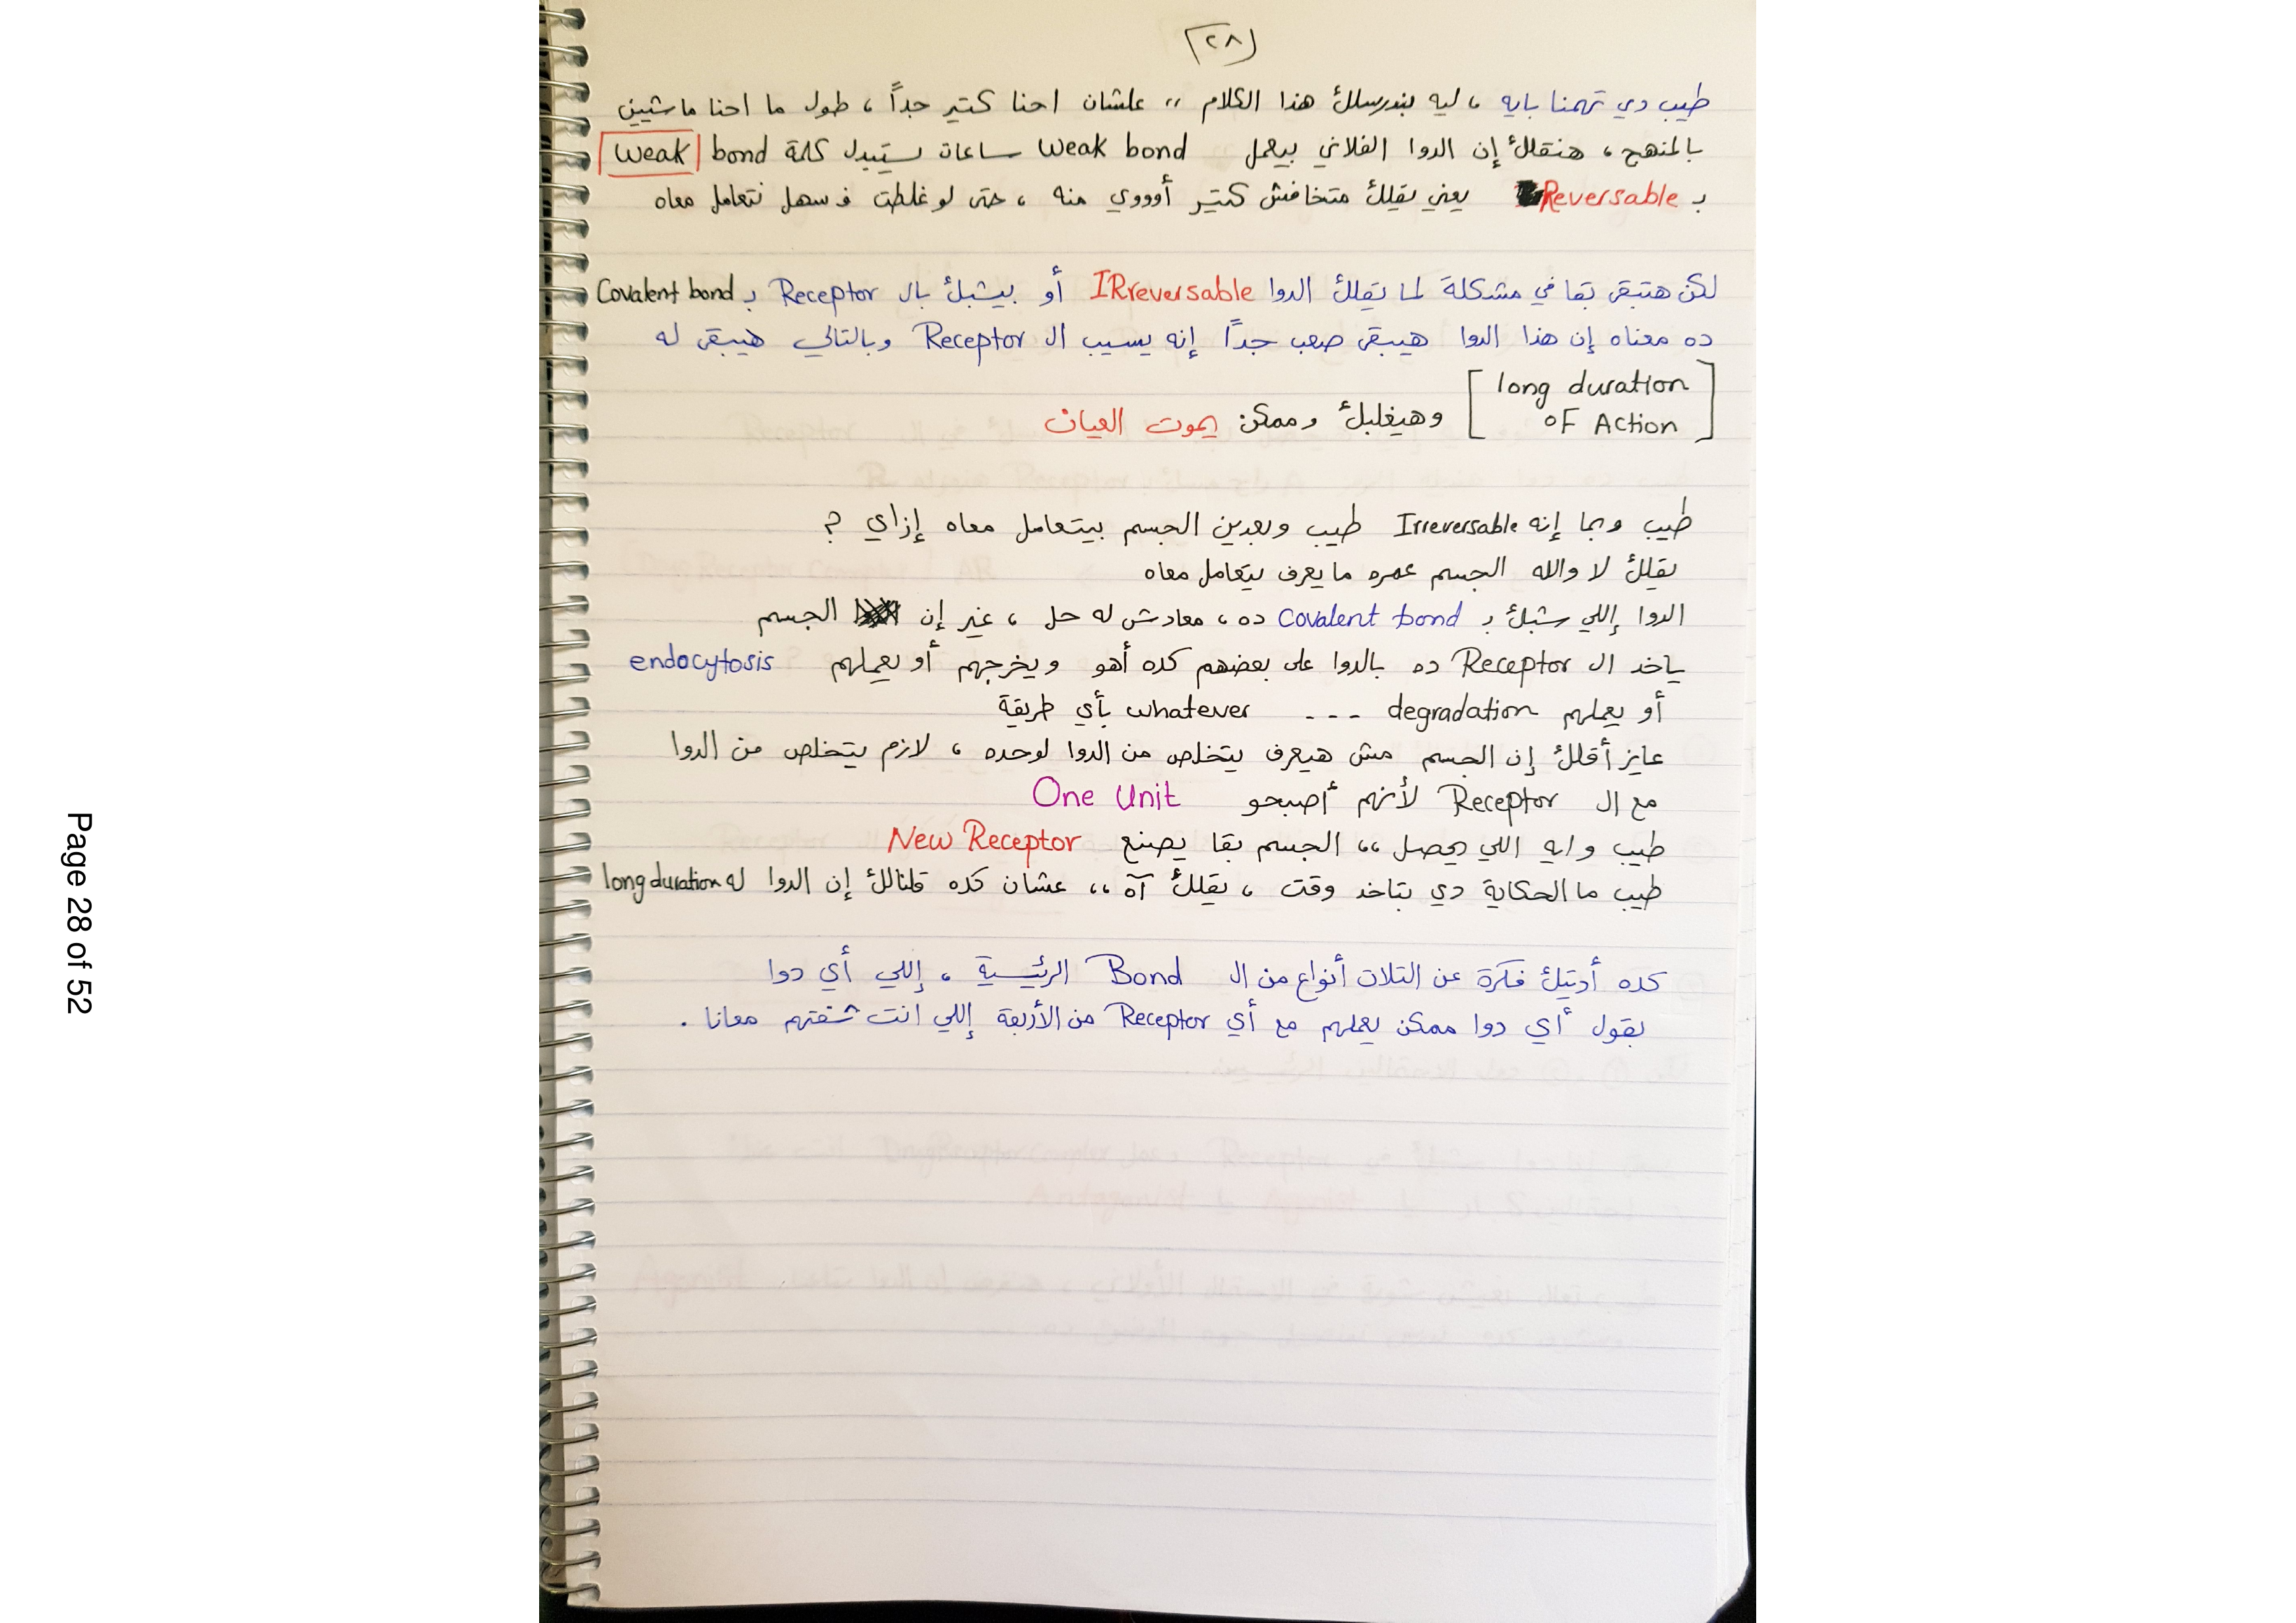 ٢٨
طيب دي تهمنا بايه ، ليه بندرسلك هذا الكلام ،، علشان احنا كتير جداً ، طول ما احنا ماشيين
بالمنهج ، هنقلك إن الدوا الفلاني بيعمل weak bond ساعات يستبدل كلمة weak bond
بـ Reversable يعني يقلك متخافش كتير أوووي منه ، حتى لو غلطت فسهل نتعامل معاه
لكن هتبقى بقا في مشكلة لما يقلك الدوا IRreversable أو بيشبك بال Receptor بـ Covalent bond
ده معناه إن هذا الدوا هيبقى صعب جداً إنه يسيب ال Receptor وبالتالي هيبقى له
[ long duration
oF Action ] وهيغلبك وممكن يموت العيان
طيب وبما إنه Irreversable طيب وبعدين الجسم بيتعامل معاه إزاي ?
يقلك لا والله الجسم عمره ما يعرف يتعامل معاه
الدوا إللي شبك بـ Covalent bond ده ، معادش له حل ، غير إن الجسم
ياخد ال Receptor ده بالدوا على بعضهم كده أهو ويخرجهم أو يعملهم endocytosis
أو يعملهم degradation --- whatever بأي طريقة
عايز أقلك إن الجسم مش هيعرف يتخلص من الدوا لوحده ، لازم يتخلص من الدوا
مع ال Receptor لأنهم أصبحو One Unit
طيب وايه اللي يحصل ،، الجسم بقا يصنع New Receptor
طيب ما الحكاية دي بتاخد وقت ، يقلك آه ،، عشان كده قلنالك إن الدوا له long duration
كده أديتك فكرة عن التلات أنواع من ال Bond الرئيسية ، إللي أي دوا
بقول أي دوا ممكن يعملهم مع أي Receptor من الأربعة إللي انت شفتهم معانا .
Page 28 of 52